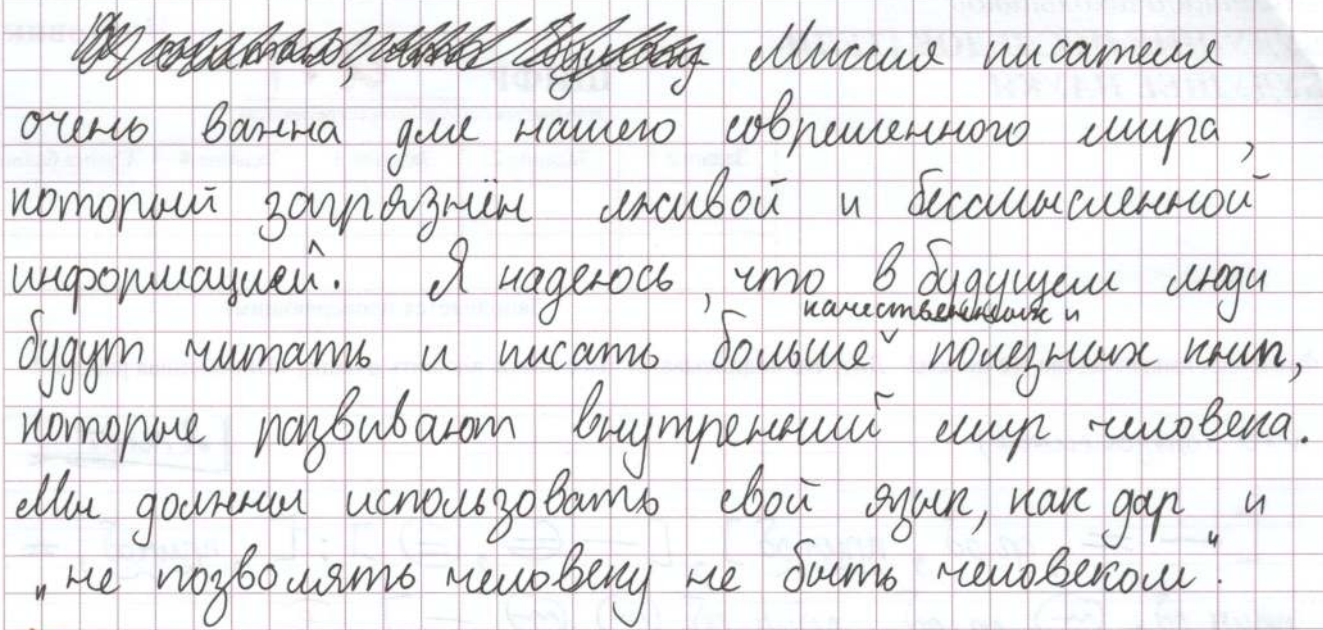 Миссия писателя
очень важна для нашего современного мира,
который загрязнён лживой и бессмысленной
информацией. Я надеюсь, что в будущем люди
качественных и
будут читать и писать больше полезных книг,
которые развивают внутренний мир человека.
Мы должны использовать свой язык, как дар и
"не позволять человеку не быть человеком".